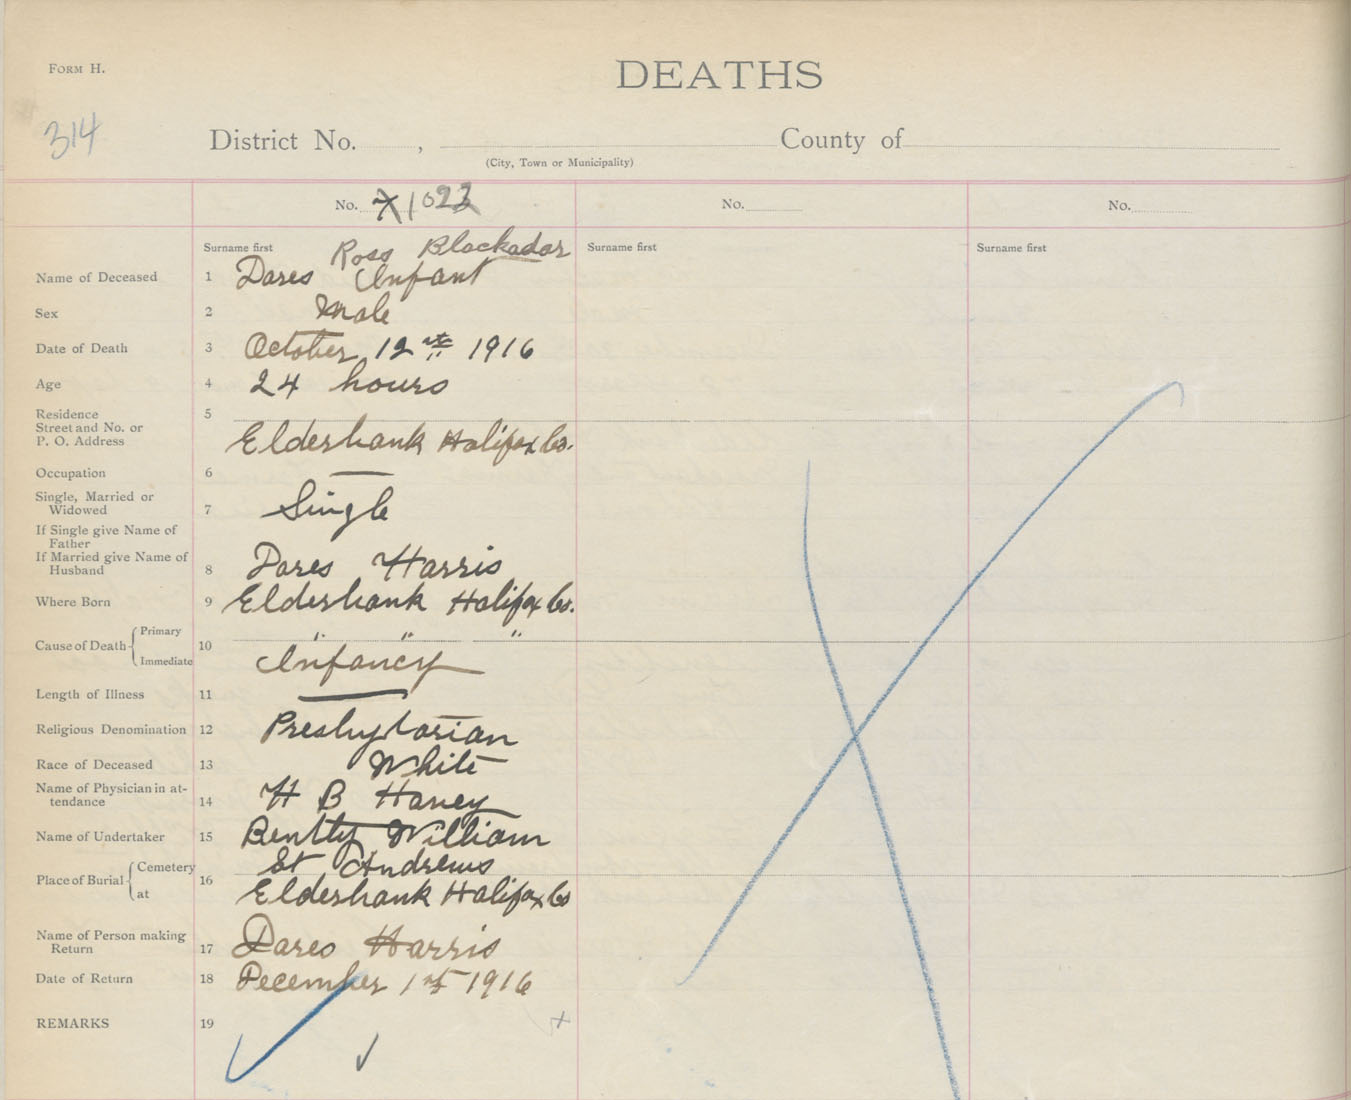 FORM H.
DEATHS
314
District No. , County of
(City, Town or Municipality)
No. 1023 No. No.
Surname first Surname first Surname first
Ross Blackadar
Name of Deceased 1 Dares Infant
Sex 2 Male
Date of Death 3 October 12 1916
Age 4 24 hours
Residence 5
Street and No. or
P. O. Address Elderbank Halifax Co.
Occupation 6 —
Single, Married or
Widowed 7 Single
If Single give Name of
Father
If Married give Name of
Husband 8 Dares Harris
Where Born 9 Elderbank Halifax Co.
Cause of Death Primary 10 " " "
Immediate Infancy
Length of Illness 11 —
Religious Denomination 12 Presbytarian
Race of Deceased 13 White
Name of Physician in at-
tendance 14 H B Havey
Name of Undertaker 15 Bentty William
Place of Burial Cemetery 16 St Andrews
at Elderbank Halifax Co
Name of Person making
Return 17 Dares Harris
Date of Return 18 December 1st 1916
REMARKS 19